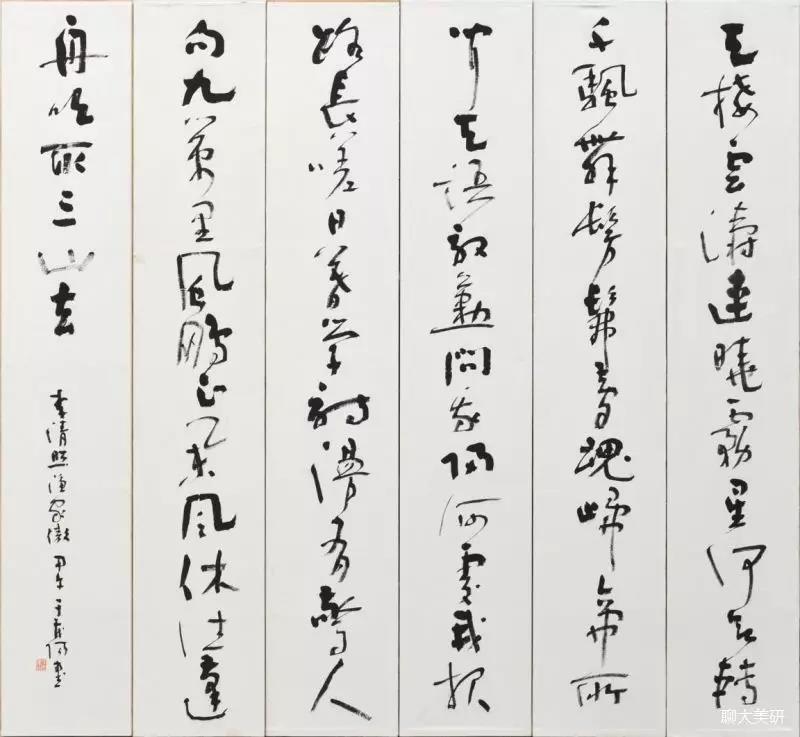 天接云濤連曉霧星河欲轉
千颿舞髣髴夢魂歸帝所
聞天語殷勤問我歸何處我報
路長嗟日暮学詩漫有驚人
句九萬里風鵬正舉風休住蓬
舟吹取三山去
李清照漁家傲 甲午 書
聊大美研